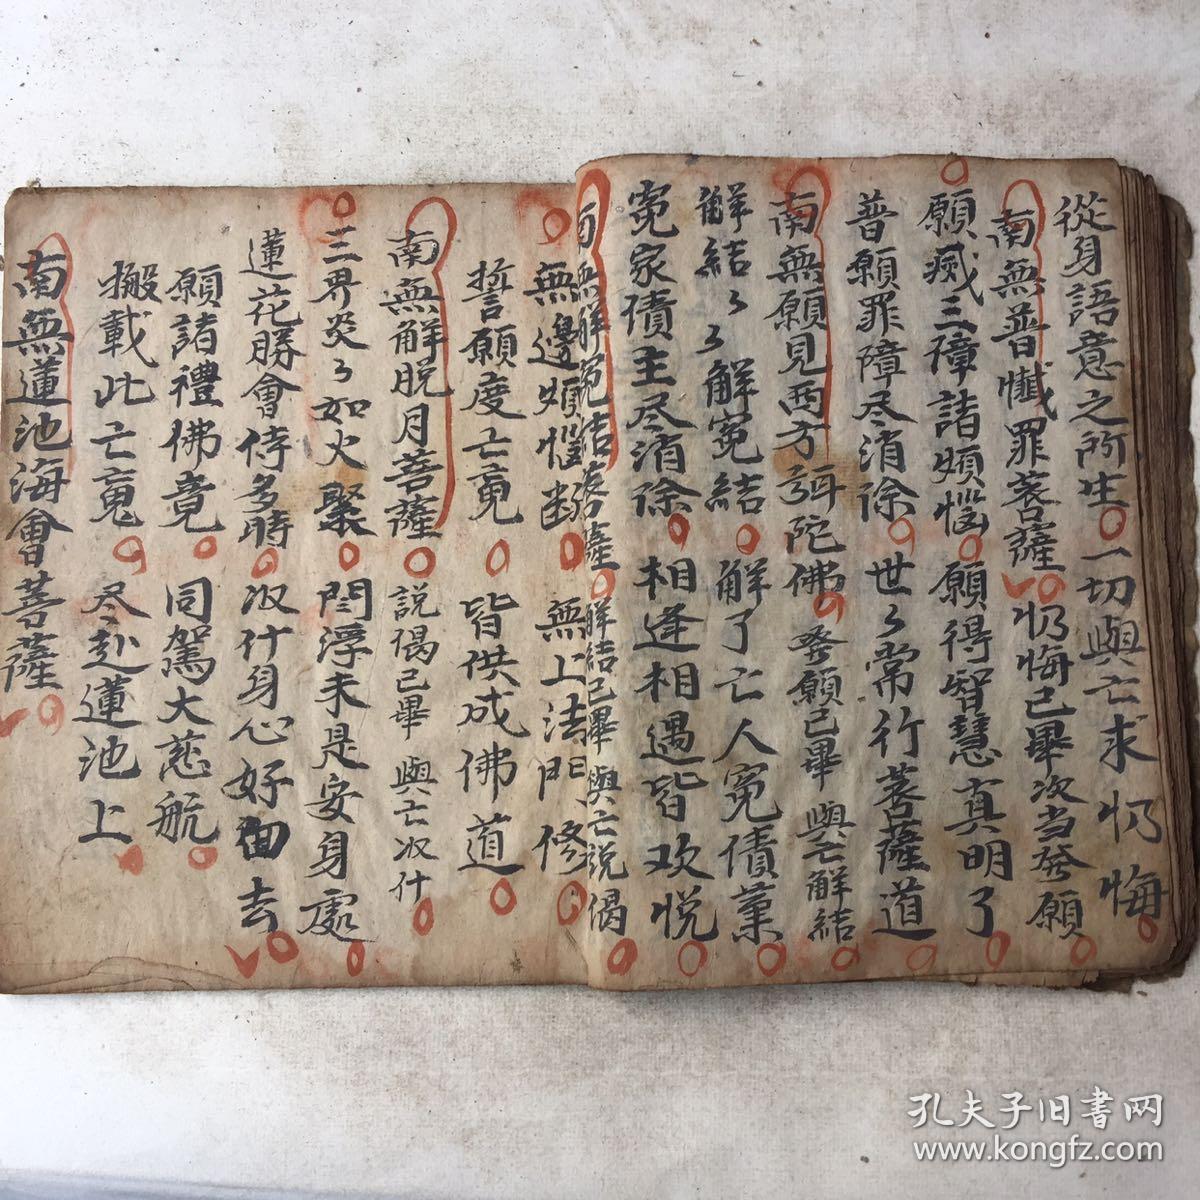 從身語意之所生 一切與亡求忏悔
南無普懺罪菩薩 忏悔已畢次当發願
願㓕三障諸煩惱 願得智慧真明了
普願罪障尽消除 世々常行菩薩道
南無願見西方弥陀佛 發願已畢 與亡解結
解結々々解冤結 解了亡人冤債業
冤家債主尽消除 相逢相遇皆欢悦
南無解冤結菩薩 解結已畢 與亡說偈
無邊煩惱断 無上法門修
誓願度亡魂 皆供成佛道
南無解脱月菩薩 說偈已畢 與亡收什
三界炎々如火聚 閻浮未是安身處
蓮花勝會侍多時 收什身心好回去
願諸禮佛竟 同駕大慈航
搬載此亡魂 尽赴蓮池上
南無蓮池海會菩薩
孔夫子旧书网
www.kongfz.com